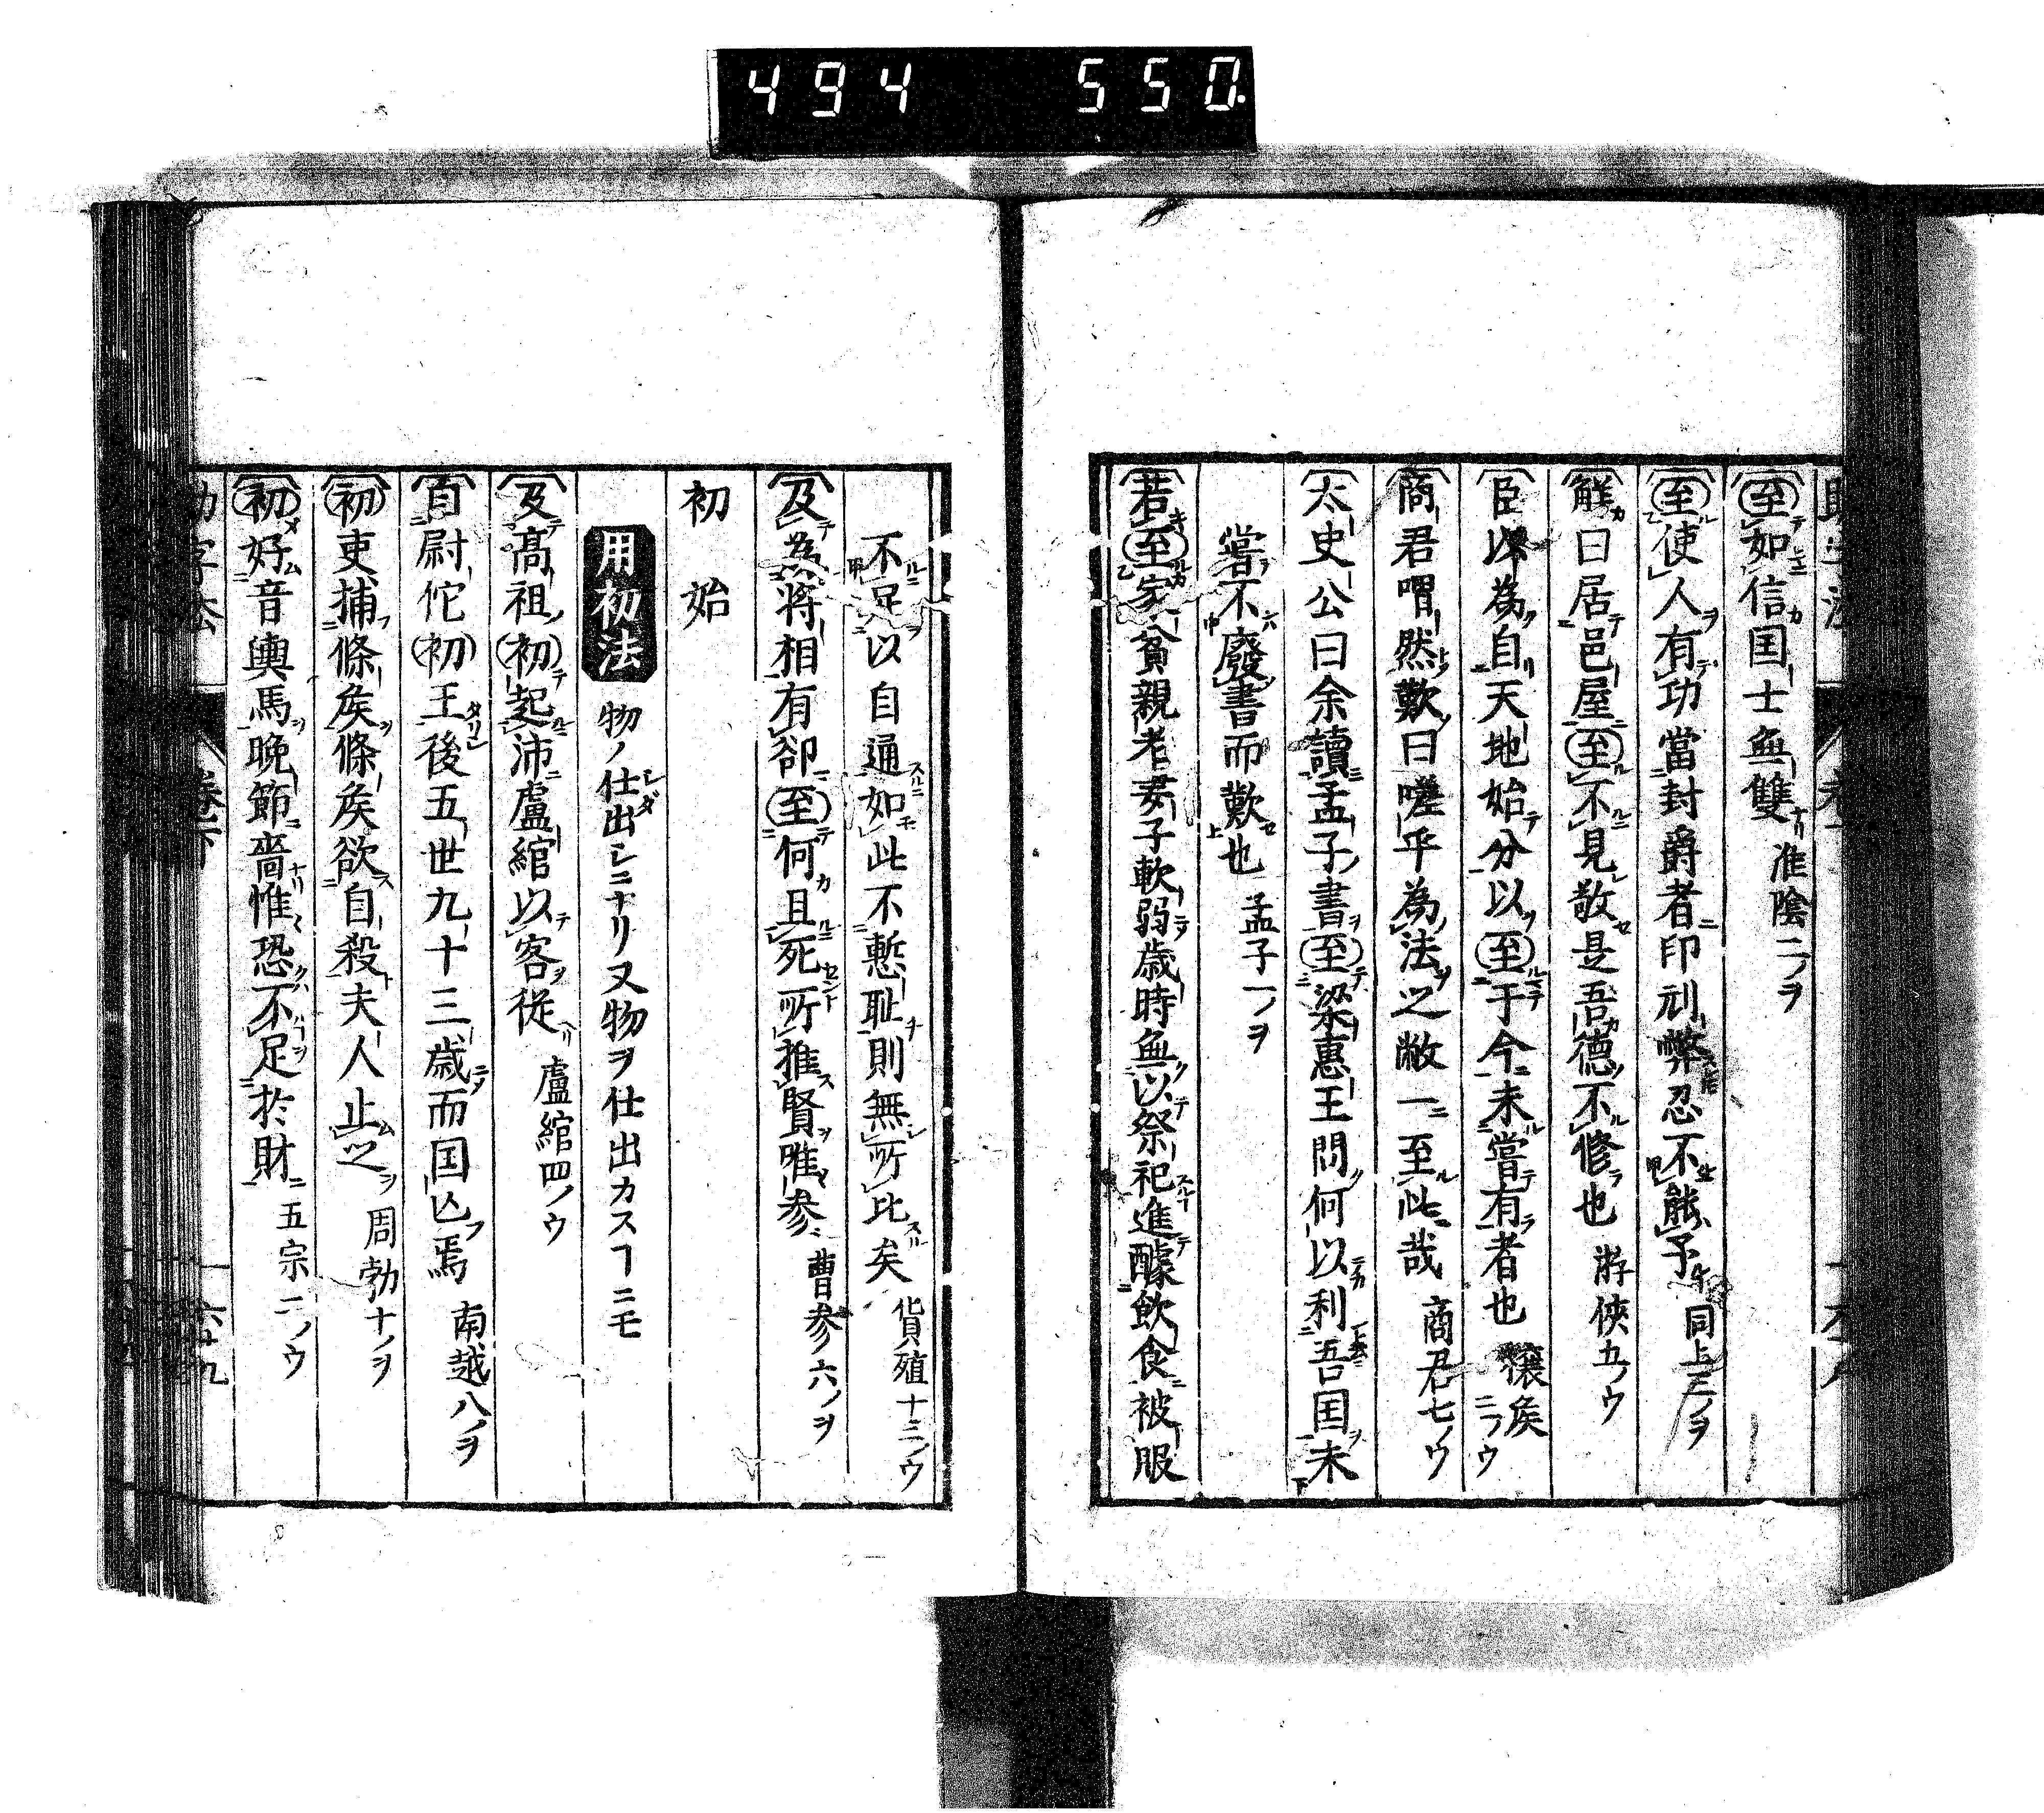 494 550.
至如信国士無雙 淮陰二ノヲ
至使人有功當封爵者印刓弊忍不能予 同上三ノヲ
解曰居邑屋至不見敬是吾德不修也 游侠五ノウ
臣以為自天地始分以至于今未嘗有者也 穰侯二ノウ
商君喟然歎曰嗟乎為法之敝一至此哉 商君七ノウ
太史公曰余讀孟子書至梁惠王問何以利吾国未
嘗不廢書而歎也 孟子一ノヲ
若至家貧親老妻子軟弱歳時無以祭祀進醵飲食被服
不足以自通如此不慙耻則無所比矣 貨殖十三ノウ
及為将相有郤至何且死所推賢唯参 曹参六ノヲ
初 始
用初法 物ノ仕出シニナリ又物ヲ仕出カスヿニモ
及高祖初起沛盧綰以客従 盧綰四ノウ
自尉佗初王後五世九十三歳而国亡焉 南越八ノヲ
初吏捕條侯條侯欲自殺夫人止之 周勃十ノヲ
初好音輿馬晩節嗇惟恐不足於財 五宗二ノウ
助字法 巻下 六十九